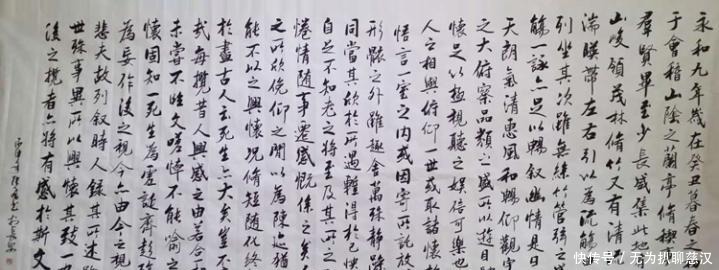 永和九年歲在癸丑暮春之
于會稽山陰之蘭亭脩稧
羣賢畢至少長咸集此地
山峻領茂林脩竹又有清
湍暎帶左右引以為流觴
列坐其次雖無絲竹管弦之
觴一詠亦足以暢叙幽情是日
天朗氣清惠風和暢仰觀宇
之大俯察品類之盛所以遊目
懷足以極視聽之娛信可樂也
人之相與俯仰一世或取諸懷
悟言一室之内或因寄所託放
形骸之外雖趣舍萬殊靜躁
同當其欣於所遇蹔得於己快
自足不知老之將至及其所之
惓情隨事遷感慨係之矣
之所欣俛仰之閒以為陳迹猶
能不以之興懷況脩短隨化終
於盡古人云死生亦大矣豈不
哉每攬昔人興感之由若合
未嘗不臨文嗟悼不能喻之
懷固知一死生為虛誕齊彭殤
為妄作後之視今亦由今之視
悲夫故列叙時人錄其所述
世殊事異所以興懷其致一
後之攬者亦將有感於斯文
快传号／无为扒聊慈汉